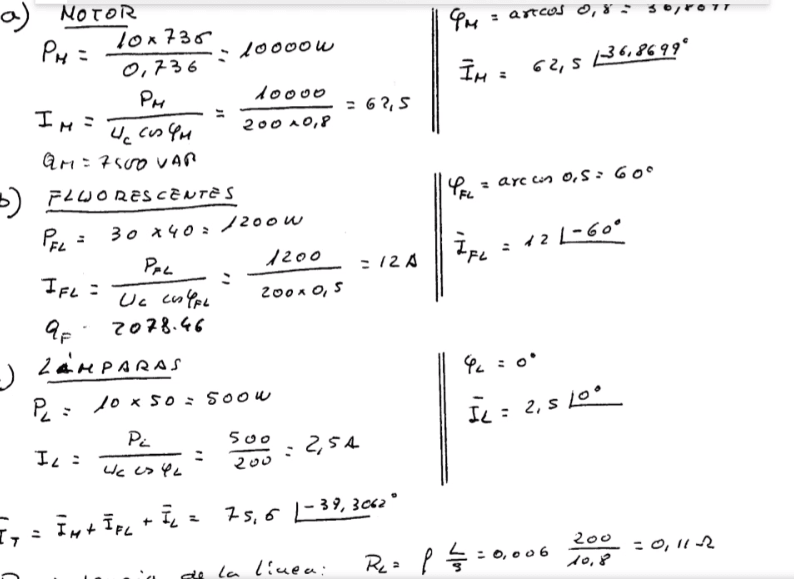 a) MOTOR
P_M = 10 x 736 / 0,736 = 10000 W
I_M = P_M / U_c cos φ_M = 10000 / 200 x 0,8 = 62,5
Q_M = 7500 VAR
φ_M = arccos 0,8 =
Ī_M = 62,5 |-36,8699°
b) FLUORESCENTES
P_FL = 30 x 40 = 1200 W
I_FL = P_FL / U_c cos φ_FL = 1200 / 200 x 0,5 = 12 A
q_F . 2078.46
φ_FL = arccos 0,5 = 60°
Ī_FL = 12 |-60°
) LÁMPARAS
P_L = 10 x 50 = 500 W
I_L = P_L / U_c cos φ_L = 500 / 200 = 2,5 A
φ_L = 0°
Ī_L = 2,5 |0°
Ī_T = Ī_M + Ī_FL + Ī_L = 75,6 |-39,3062°
de la línea: R_L = ρ L/S = 0,006 200/10,8 = 0,11 Ω